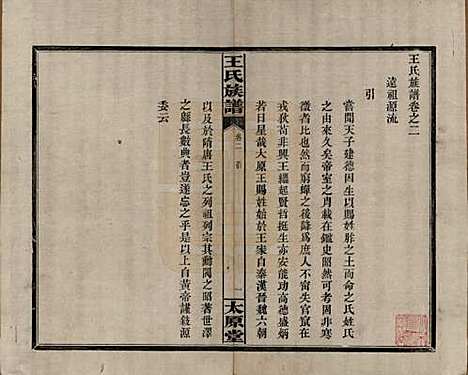 王氏族譜卷之二
遠祖源流
引
嘗聞天子建德因生以賜姓胙之土而命之氏姓氏
之由來久矣帝室之胄載在鑑史昭然可考固非寒
微者比也然而窮蟬之後降為庶人不失官宸在
戎狄苟非興王繼起賢挡挺生亦安能功高德盛炳
若日星哉太原王賜姓始於王宋自秦漢晉魏六朝
以及於隋唐王氏之列祖列宗其勳閥之昭著世澤
之縣長數典者豈遂忘之乎是以上自黃帝謹敘源
委云
王氏族譜
卷二
引
一
太原堂